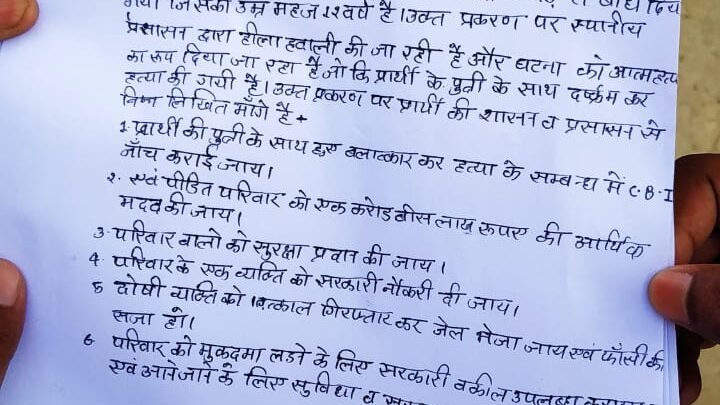 गया जिसकी उम्र महज 12 वर्ष है। उक्त प्रकरण पर स्थानीय
प्रसासन द्वारा हीला हवाली की जा रही है और घटना को आत्महत्या
का रूप दिया जा रहा है जो कि प्रार्थी के पुत्री के साथ दुर्ष्कम कर
हत्या की गयी है। उक्त प्रकरण पर प्रार्थी की शासन व प्रसासन से
निम्न लिखित माँगे है -
1. प्रार्थी की पुत्री के साथ हुए बलात्कार कर हत्या के सम्बन्ध में C.B.I
जाँच कराई जाय।
2. एवं पीडित परिवार को एक करोड बीस लाख रूपए की आर्थिक
मदद की जाय।
3. परिवार वालो को सुरक्षा प्रदान की जाय।
4. परिवार के एक व्यक्ति को सरकारी नौकरी दी जाय।
5 दोषी व्यक्ति को तत्काल गिरफ्तार कर जेल भेजा जाय एवं फाँसी की
सजा हो।
6 परिवार को मुकदमा लडने के लिए सरकारी वकील उपलब्ध
एवं आने जाने के लिए सुविधा व